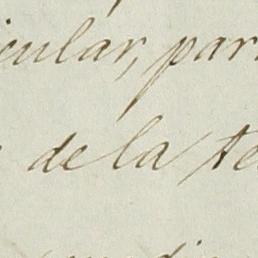 icular, par
de la te